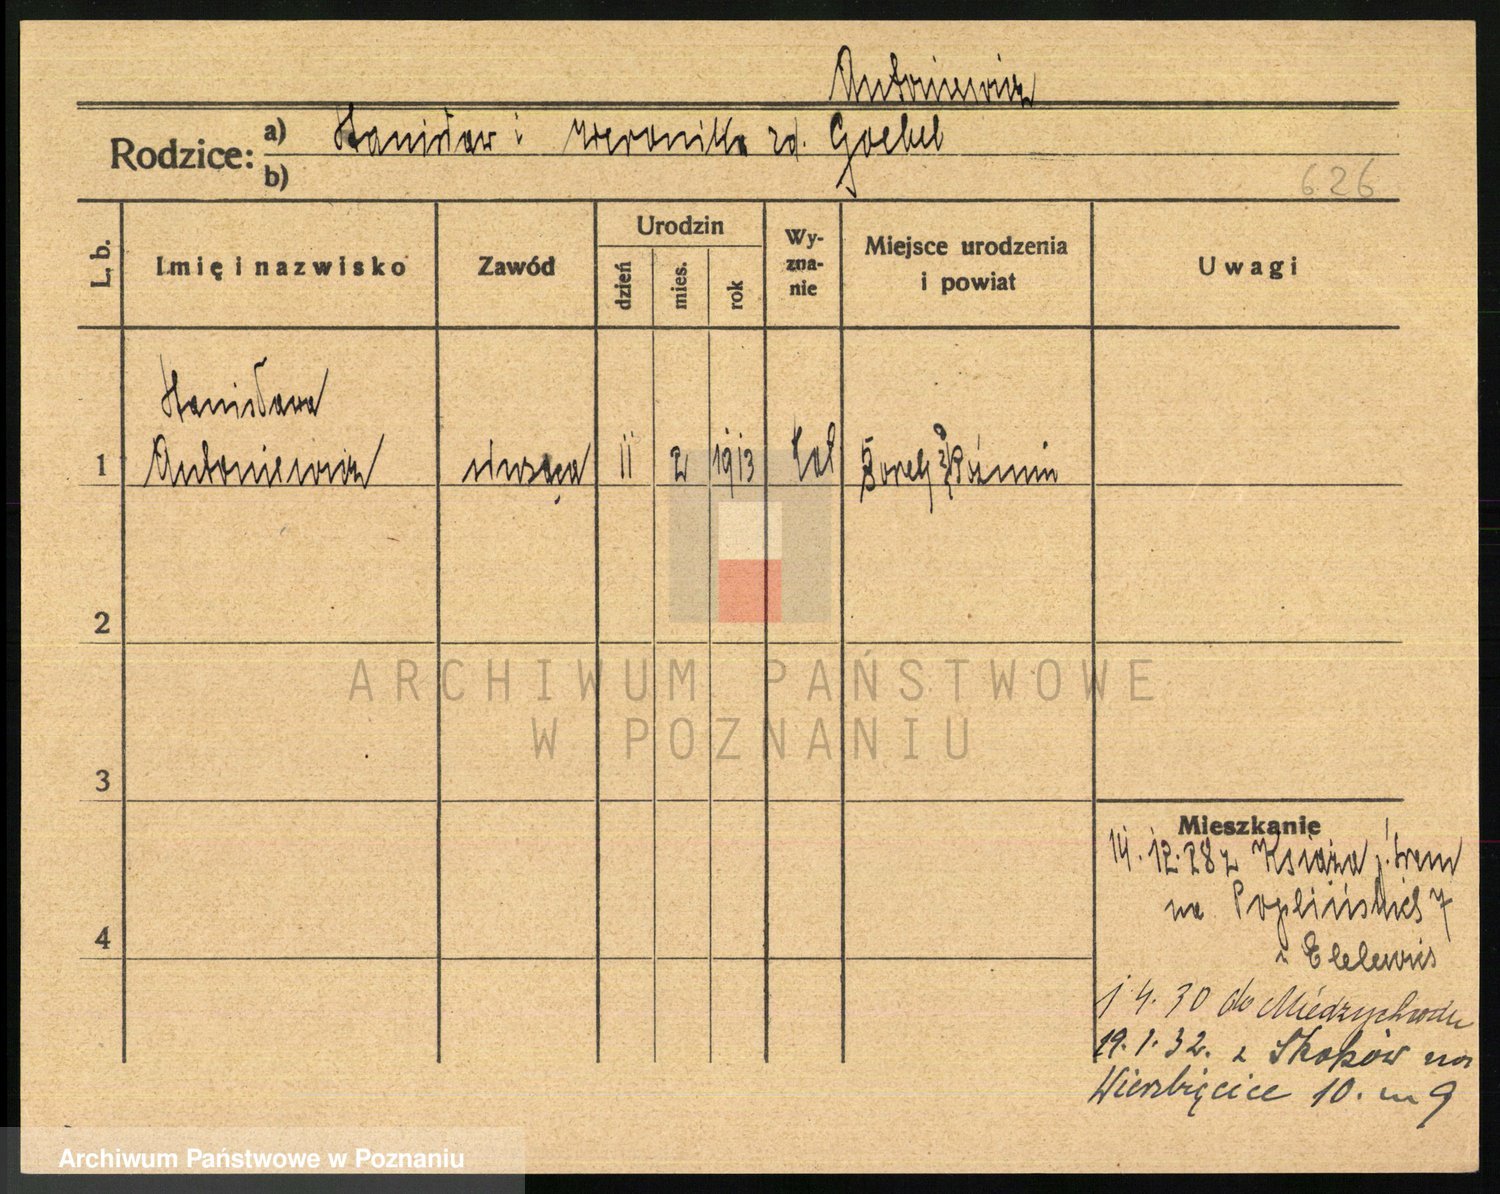 Antoniewicz
Rodzice: a) Stanisław i Weronika zd. Goebel
b)
626
L. b.
Imię i nazwisko
Zawód
Urodzin
dzień
mies.
rok
Wy-
zna-
nie
Miejsce urodzenia
i powiat
Uwagi
Stanisława
1 Antoniewicz służąca 11 2 1913 kat Borek Koźmin
2
3
4
Mieszkanie
14.12.28 z Książa Śrem
na Poplińskich 7
u
1 4. 30 do Międzychodu
19.1.32. z Skoków na
Wierzbięcice 10. m 9
ARCHIWUM PAŃSTWOWE
W POZNANIU
Archiwum Państwowe w Poznaniu